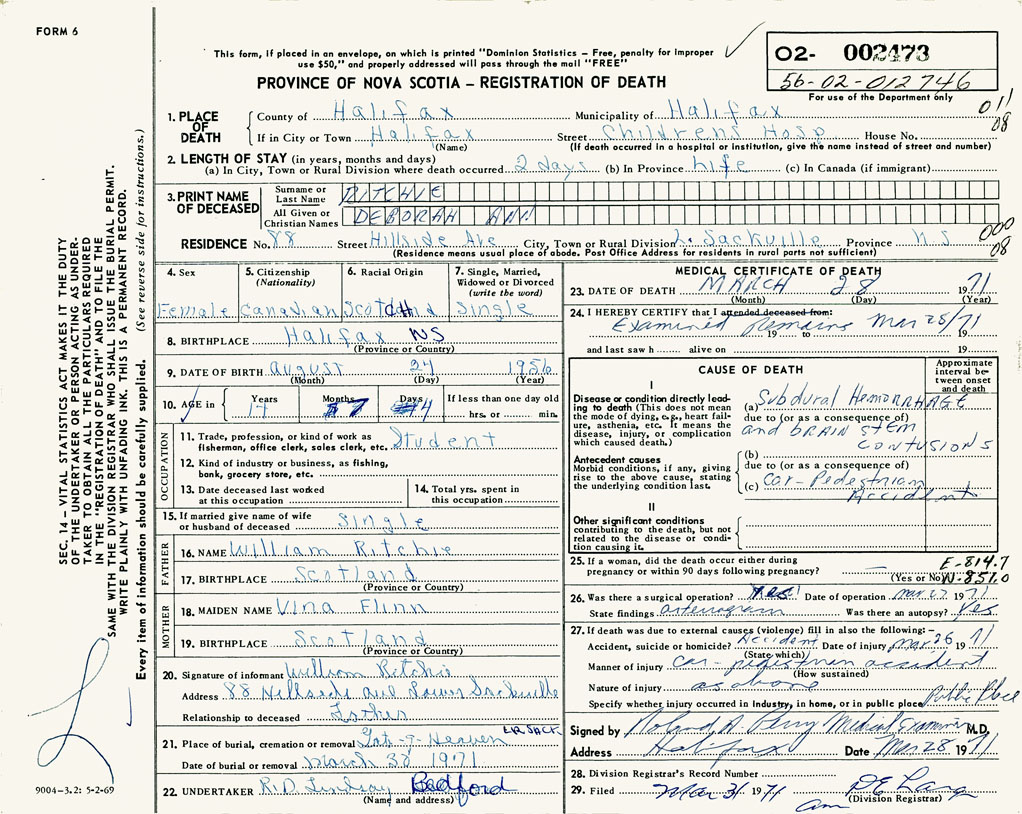 FORM 6
This form, if placed in an envelope, on which is printed "Dominion Statistics – Free, penalty for improper
use $50," and properly addressed will pass through the mail "FREE"
PROVINCE OF NOVA SCOTIA – REGISTRATION OF DEATH
02- 002473
56-02-012746
For use of the Department only
011
08
SEC. 14 – VITAL STATISTICS ACT MAKES IT THE DUTY
OF THE UNDERTAKER OR PERSON ACTING AS UNDER-
TAKER TO OBTAIN ALL THE PARTICULARS REQUIRED
IN THE "REGISTRATION OF DEATH" AND TO FILE THE
SAME WITH THE DIVISION REGISTRAR WHO SHALL ISSUE THE BURIAL PERMIT.
WRITE PLAINLY WITH UNFADING INK. THIS IS A PERMANENT RECORD.
Every item of information should be carefully supplied. (See reverse side for instructions.)
9004-3.2: 5-2-69
1. PLACE OF DEATH
County of Halifax Municipality of Halifax
If in City or Town Halifax Street Childrens Hosp House No.
(Name) (If death occurred in a hospital or institution, give the name instead of street and number)
2. LENGTH OF STAY (in years, months and days)
(a) In City, Town or Rural Division where death occurred 2 days (b) In Province Life (c) In Canada (if immigrant)
3. PRINT NAME OF DECEASED
Surname or Last Name RITCHIE
All Given or Christian Names DEBORAH ANN
RESIDENCE No. 88 Street Hillside Ave City, Town or Rural Division L. Sackville Province NS
000
08
(Residence means usual place of abode. Post Office Address for residents in rural parts not sufficient)
4. Sex
Female
5. Citizenship
(Nationality)
Canadian
6. Racial Origin
Scotch
7. Single, Married,
Widowed or Divorced
(write the word)
Single
8. BIRTHPLACE Halifax NS
(Province or Country)
9. DATE OF BIRTH August 24 1956
(Month) (Day) (Year)
10. AGE in Years 14 Months 7 Days 4 If less than one day old
hrs. or min.
OCCUPATION
11. Trade, profession, or kind of work as
fisherman, office clerk, sales clerk, etc. Student
12. Kind of industry or business, as fishing,
bank, grocery store, etc.
13. Date deceased last worked
at this occupation
14. Total yrs. spent in
this occupation
15. If married give name of wife
or husband of deceased Single
FATHER
16. NAME William Ritchie
17. BIRTHPLACE Scotland
(Province or Country)
MOTHER
18. MAIDEN NAME Vina Flinn
19. BIRTHPLACE Scotland
(Province or Country)
20. Signature of informant William Ritchie
Address 88 Hillside ave Lower Sackville
Relationship to deceased Father
21. Place of burial, cremation or removal Gate of Heaven LR SACK
Date of burial or removal March 30 1971
22. UNDERTAKER R.D. Lindsay Bedford
(Name and address)
MEDICAL CERTIFICATE OF DEATH
23. DATE OF DEATH MARCH 28 1971
(Month) (Day) (Year)
24. I HEREBY CERTIFY that I attended deceased from:
Examined Remains Mar 28/71
19 to 19
and last saw h alive on 19
CAUSE OF DEATH
Approximate
interval be-
tween onset
and death
I
Disease or condition directly lead-
ing to death (This does not mean
the mode of dying, e.g., heart fail-
ure, asthenia, etc. It means the
disease, injury, or complication
which caused death.)
(a) Subdural HemorrHAGE
due to (or as a consequence of)
and BRAIN STEM
CONTUSIONS
Antecedent causes
Morbid conditions, if any, giving
rise to the above cause, stating
the underlying condition last.
(b)
due to (or as a consequence of)
(c) Car-Pedestrian
Accident
II
Other significant conditions
contributing to the death, but not
related to the disease or condi-
tion causing it.
25. If a woman, did the death occur either during
pregnancy or within 90 days following pregnancy?
(Yes or No)
E-814.7
N-851.0
26. Was there a surgical operation? Yes Date of operation Mar 27 1971
State findings arteriogram Was there an autopsy? Yes
27. If death was due to external causes (violence) fill in also the following:–
Accident, suicide or homicide? Accident Date of injury Mar 26 1971
(State which)
Manner of injury car-pedestrian accident
(How sustained)
Nature of injury as above
Specify whether injury occurred in Industry, in home, or in public place Public Place
Signed by Roland A. Perry Medical Examiner M.D.
Address Halifax Date Mar 28 1971
28. Division Registrar's Record Number
29. Filed Mar 31 1971 DE Lang
am (Division Registrar)